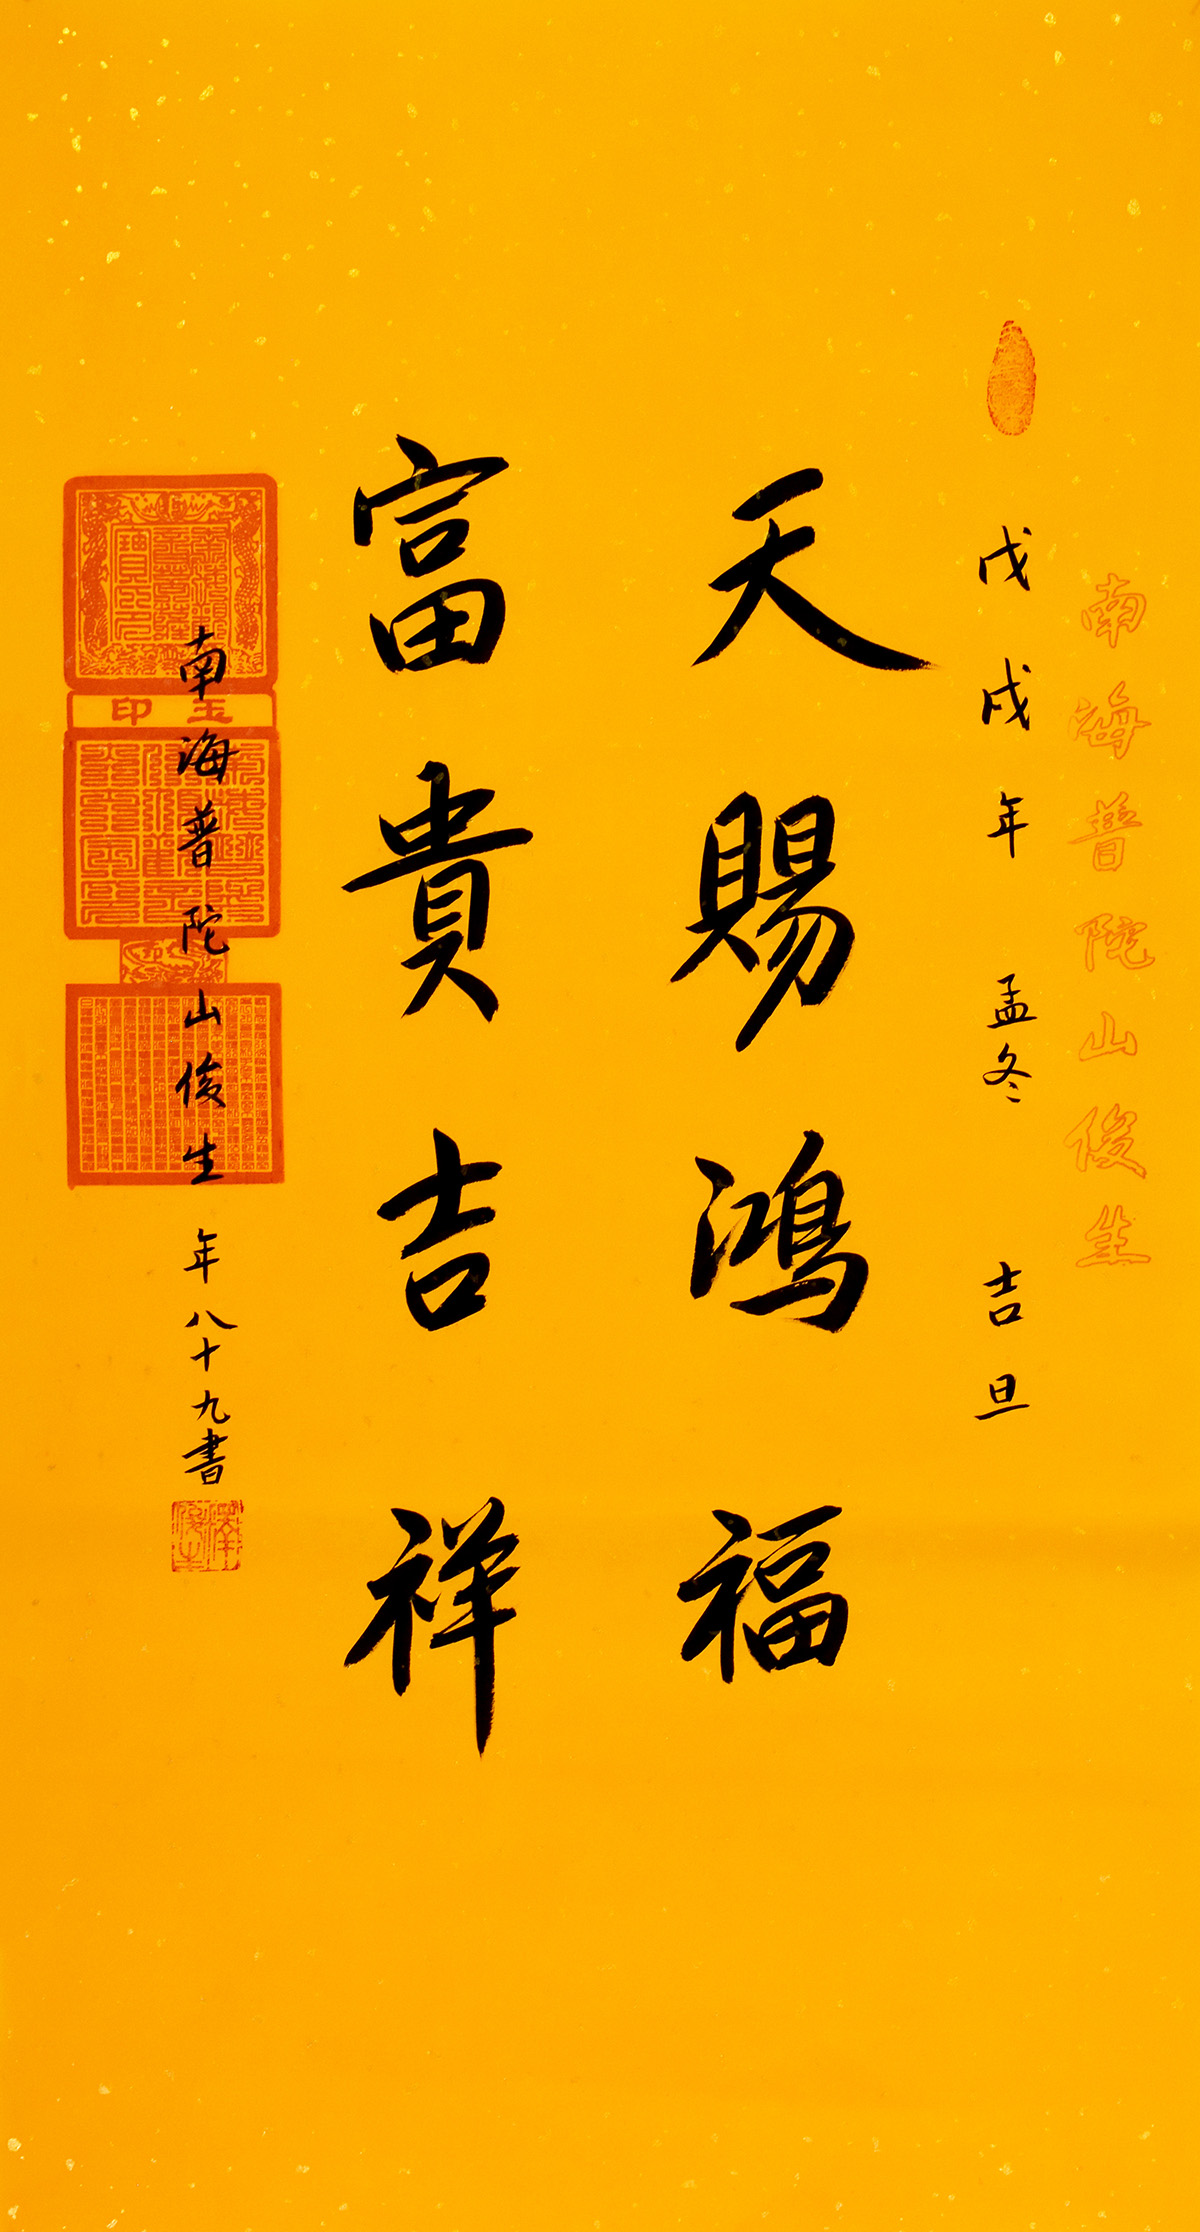 南海普陀山俊生
戊戌年孟冬吉旦
天賜鴻福
富貴吉祥
南海普陀山俊生年八十九書
玉印